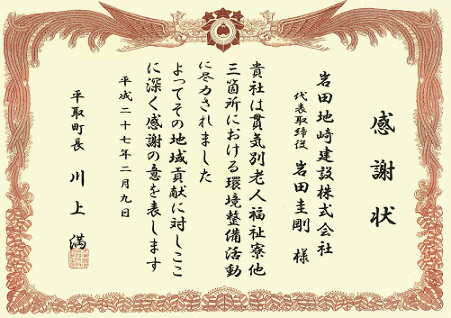 感謝状
岩田地崎建設株式会社
代表取締役 岩田圭剛 様
貴社は貫気別老人福祉寮他
三箇所における環境整備活動
に尽力されました
よってその地域貢献に対しここ
に深く感謝の意を表します
平成二十七年二月九日
平取町長 川上 満